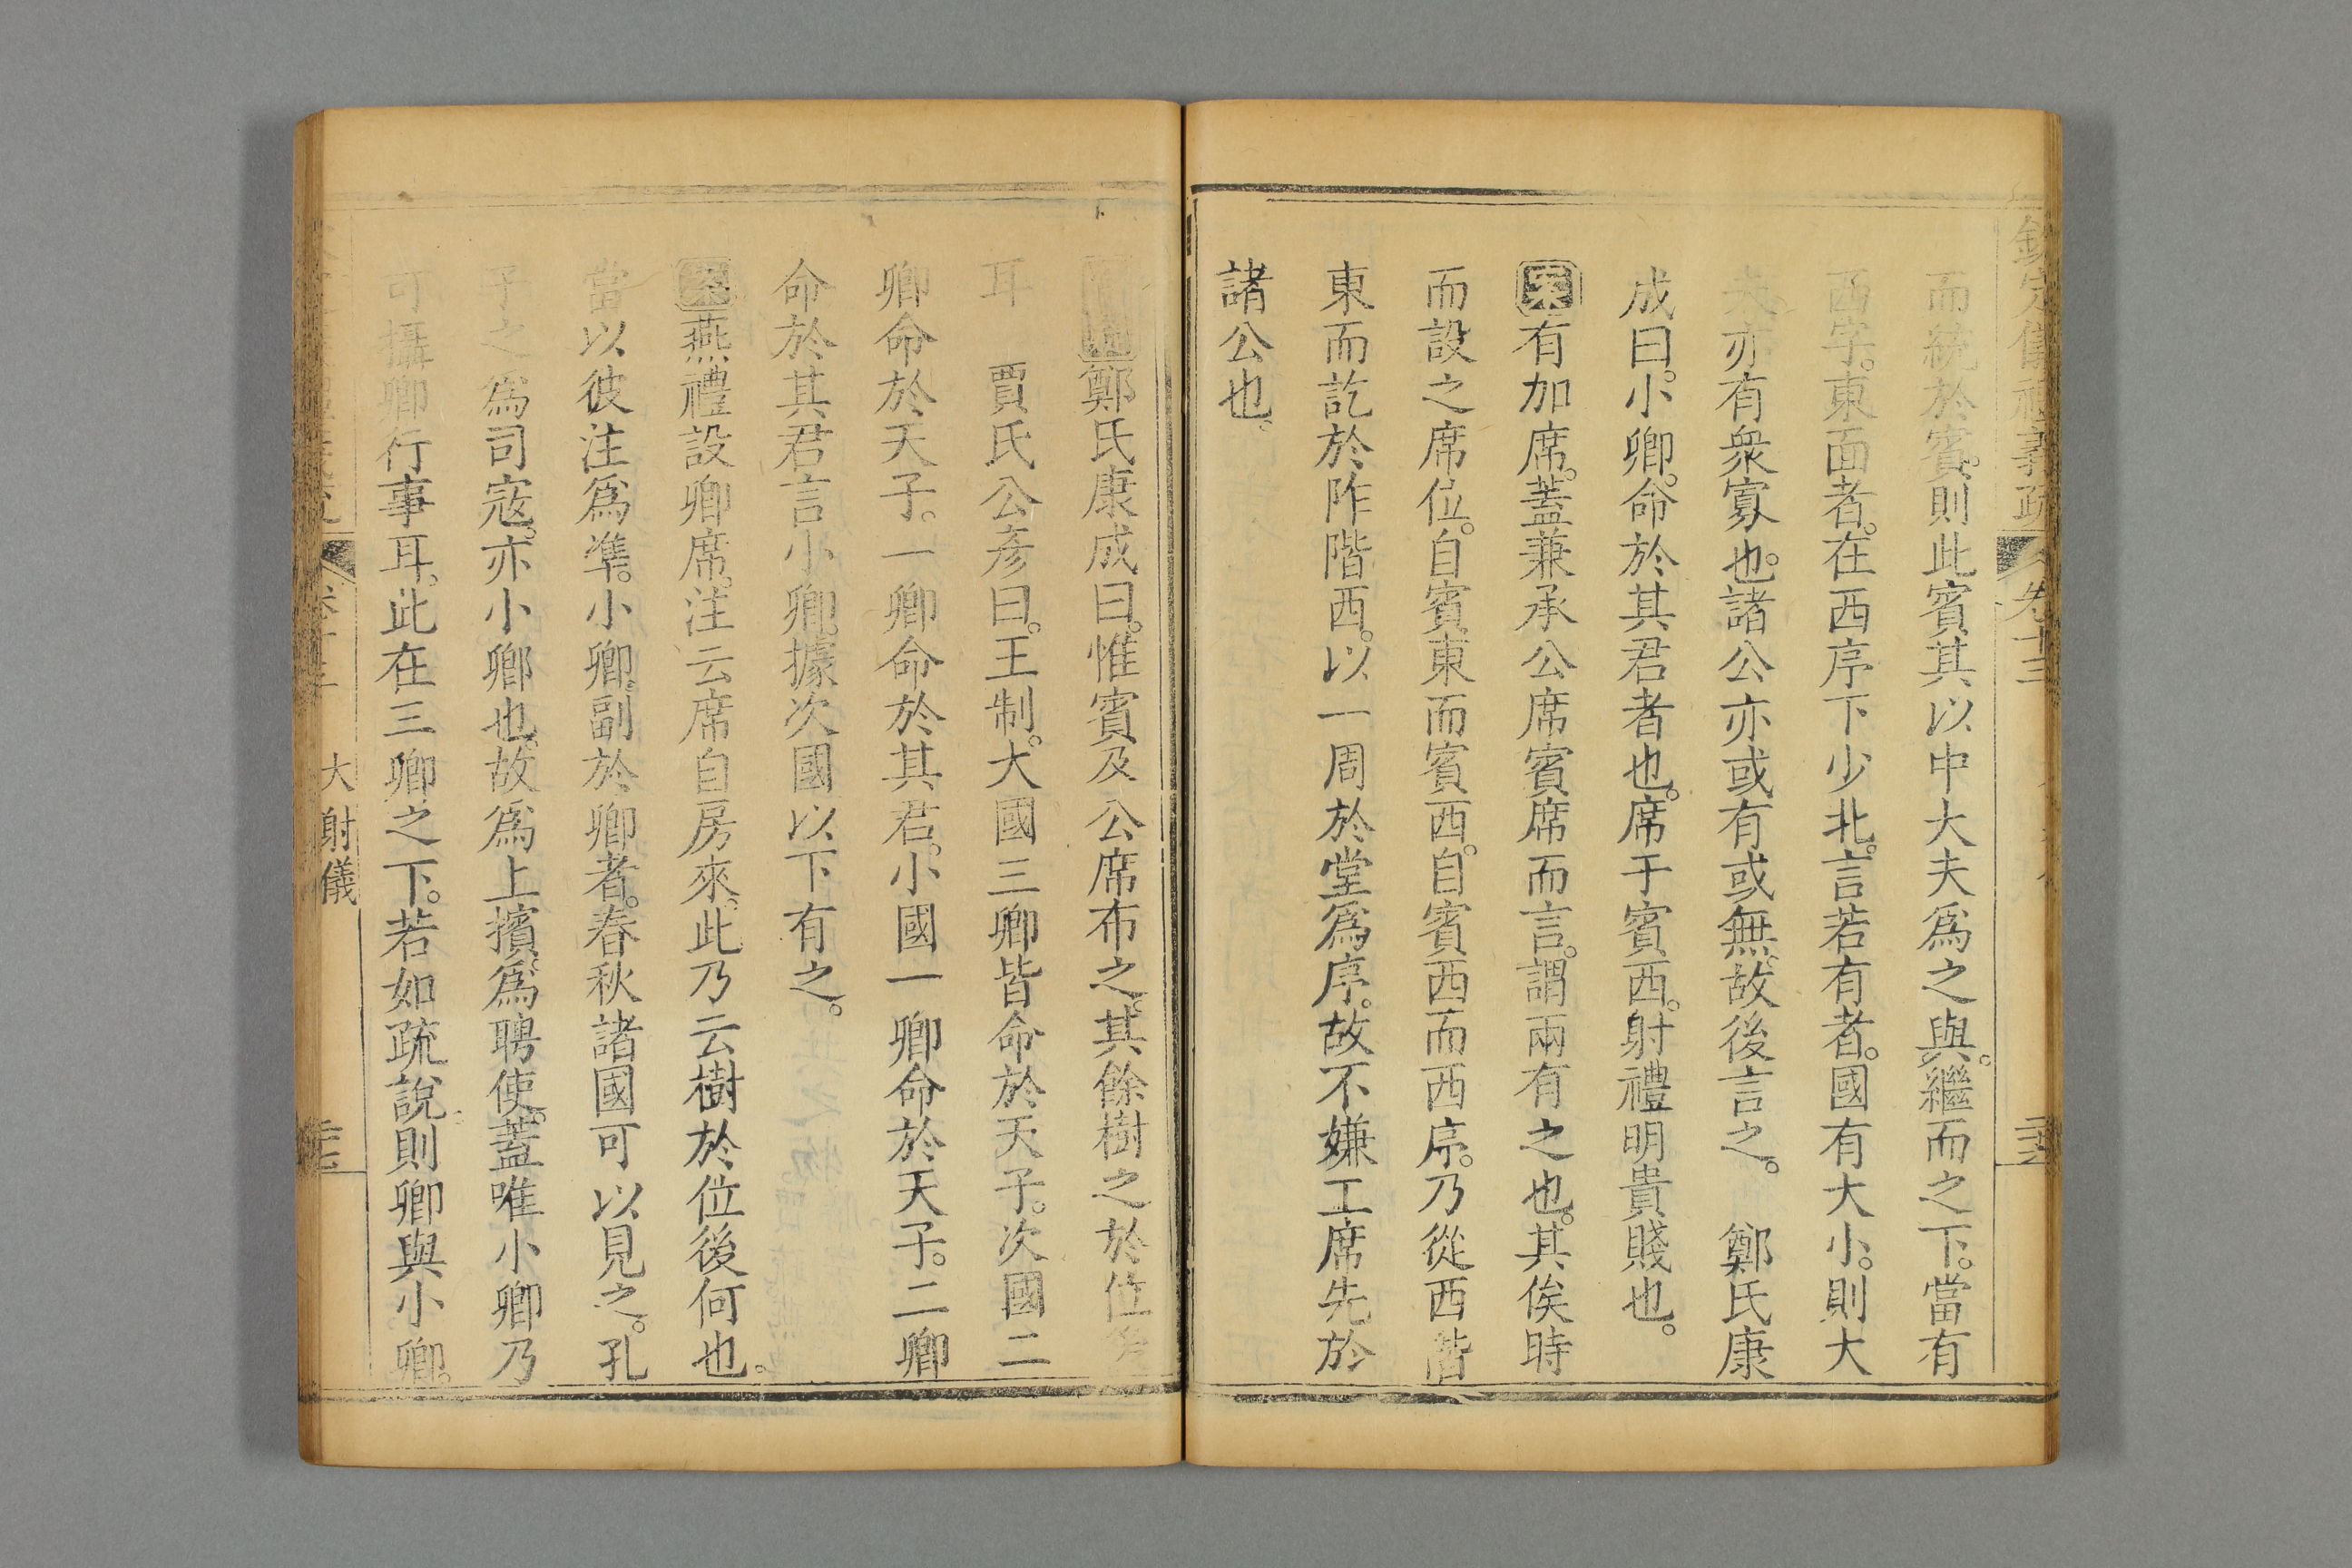 欽定儀禮義疏 卷十三
而統於賓。則此賓其以中大夫爲之與。繼而之下。當有
西字。東面者。在西序下少北。言若有者。國有大小。則大
夫亦有衆寡也。諸公亦或有或無。故後言之。 鄭氏康
成曰。小卿。命於其君者也。席于賓西。射禮明貴賤也。
案有加席。蓋兼承公席賓席而言。謂兩有之也。其俟時
而設之席位。自賓東而賓西。自賓西而西序。乃從西階
東而訖於阼階西。以一周於堂爲序。故不嫌工席先於
諸公也。
鄭氏康成曰。惟賓及公席布之。其餘樹之於位後
耳 賈氏公彥曰。王制。大國三卿皆命於天子。次國二
卿命於天子。一卿命於其君。小國一卿命於天子。二卿
命於其君言小卿。據次國以下有之。
案燕禮設卿席。注云席自房來。此乃云樹於位後何也。
當以彼注爲準。小卿。副於卿者。春秋諸國可以見之。孔
子之爲司寇。亦小卿也。故爲上擯。爲聘使。蓋唯小卿乃
可攝卿行事耳。此在三卿之下。若如疏說則卿與小卿。
大射儀